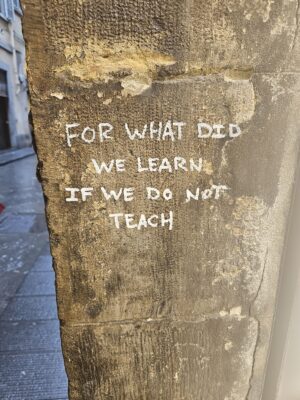 FOR WHAT DID
WE LEARN
IF WE DO NOT
TEACH